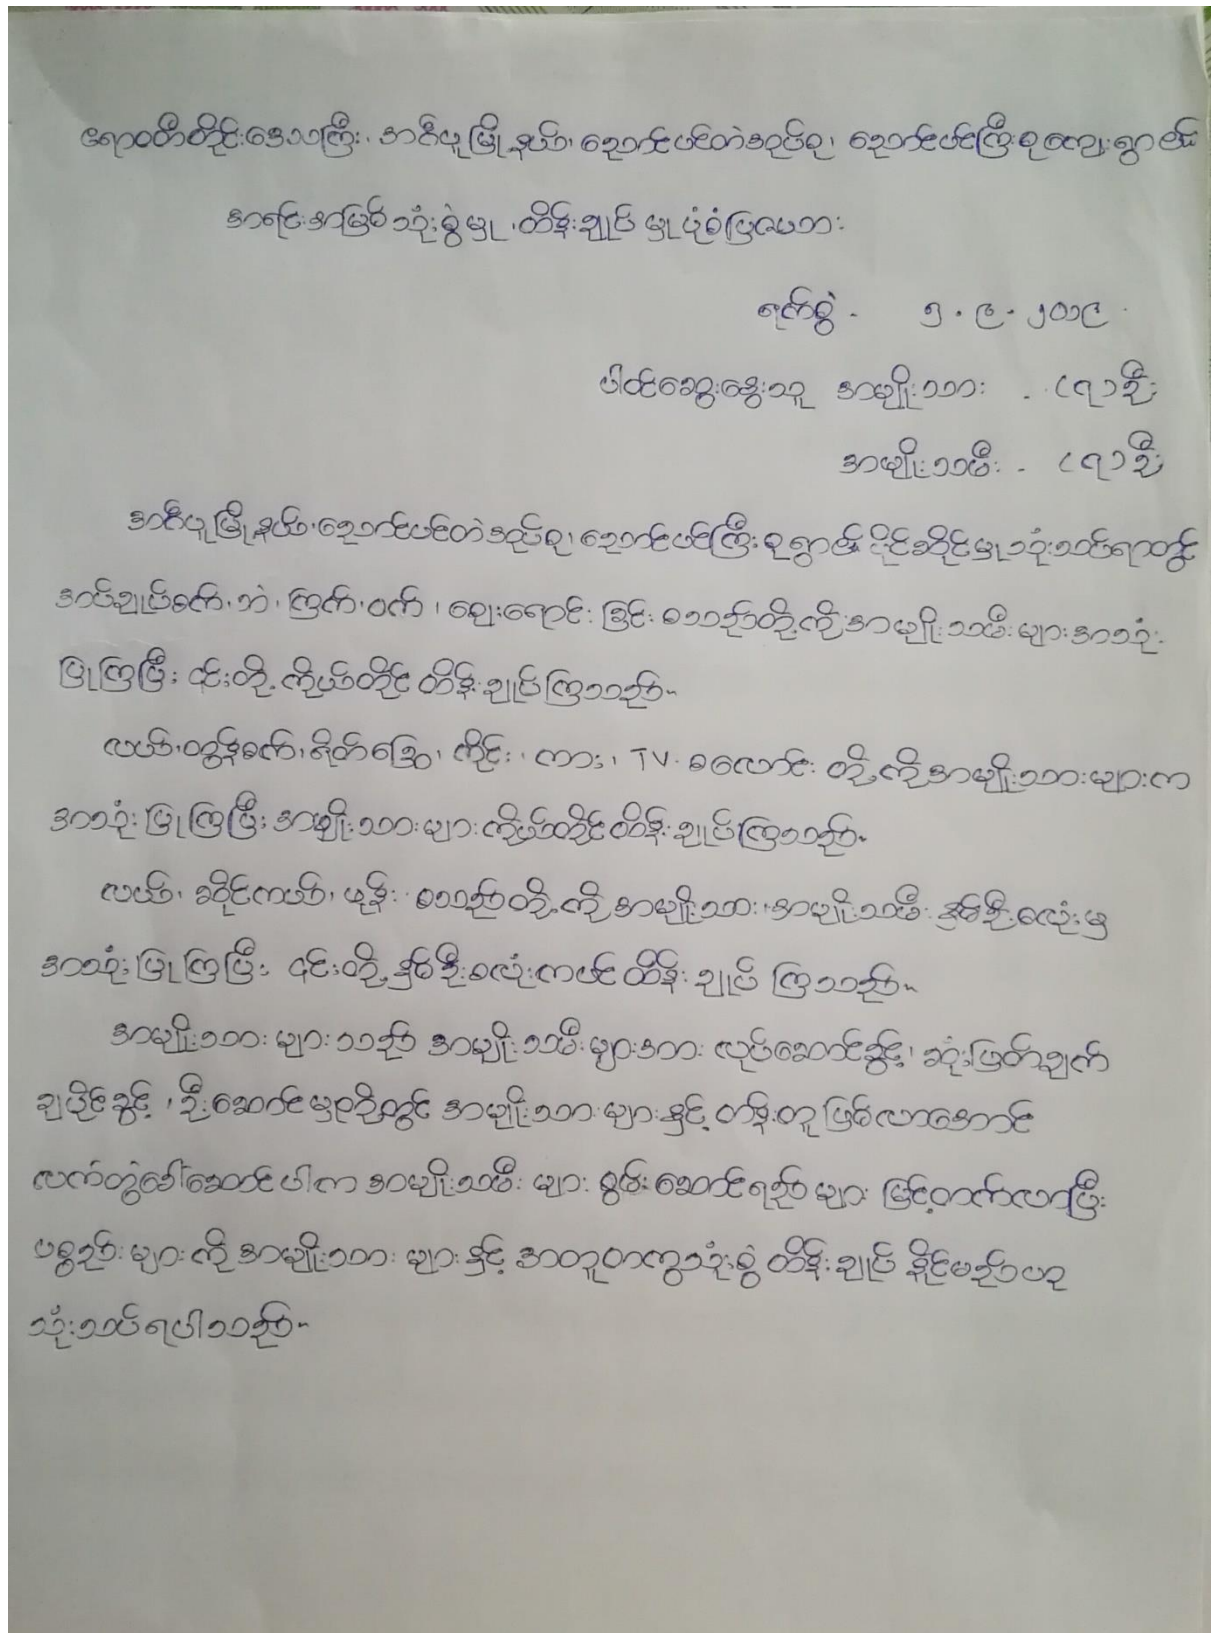 ဧရာဝတီတိုင်းဒေသကြီး၊ အင်္ဂပူမြို့နယ်၊ ညောင်ပင်တဲအုပ်စု၊ ညောင်ပင်ကြီးစုကျေးရွာ၏
အရင်းအမြစ်သုံးစွဲမှု၊ ထိန်းချုပ်မှုပုံစံပြဇယား
ရက်စွဲ - ၅.၉.၂၀၁၉
ပါဝင်ဆွေးနွေးသူ အမျိုးသား - (၇)ဦး
အမျိုးသမီး - (၇)ဦး
အင်္ဂပူမြို့နယ်၊ ညောင်ပင်တဲအုပ်စု၊ ညောင်ပင်ကြီးစုရွာ၏ ပိုင်ဆိုင်မှုသုံးသပ်ရာတွင်
အပ်ချုပ်စက်၊ ဘဲ၊ ကြက်၊ ဝက်၊ ဈေးရောင်းခြင်း စသည်တို့ကို အမျိုးသမီးများအသုံး
ပြုကြပြီး ၎င်းတို့ကိုယ်တိုင် ထိန်းချုပ်ကြသည်။
လယ်၊ ထွန်စက်၊ ရိတ်ခြွေ၊ ကိုင်း၊ ကား၊ TV စလောင်း တို့ကို အမျိုးသားများက
အသုံးပြုကြပြီး အမျိုးသားများကိုယ်တိုင်ထိန်းချုပ်ကြသည်။
လယ်၊ ဆိုင်ကယ်၊ ဖုန်း စသည်တို့ကို အမျိုးသား၊ အမျိုးသမီး နှစ်ဦးစလုံးမှ
အသုံးပြုကြပြီး ၎င်းတို့နှစ်ဦးစလုံးကပင် ထိန်းချုပ်ကြသည်။
အမျိုးသားများသည် အမျိုးသမီးများအား လုပ်ဆောင်ခွင့်၊ ဆုံးဖြတ်ချက်
ချပိုင်ခွင့်၊ ဦးဆောင်မှုတို့တွင် အမျိုးသားများနှင့် တန်းတူဖြစ်လာအောင်
လက်တွဲခေါ်ဆောင်ပါက အမျိုးသမီးများ စွမ်းဆောင်ရည်များ မြင့်တက်လာပြီး
ပစ္စည်းများကို အမျိုးသားများနှင့် အတူတကွသုံးစွဲ ထိန်းချုပ်နိုင်မည်ဟု
သုံးသပ်ရပါသည်။